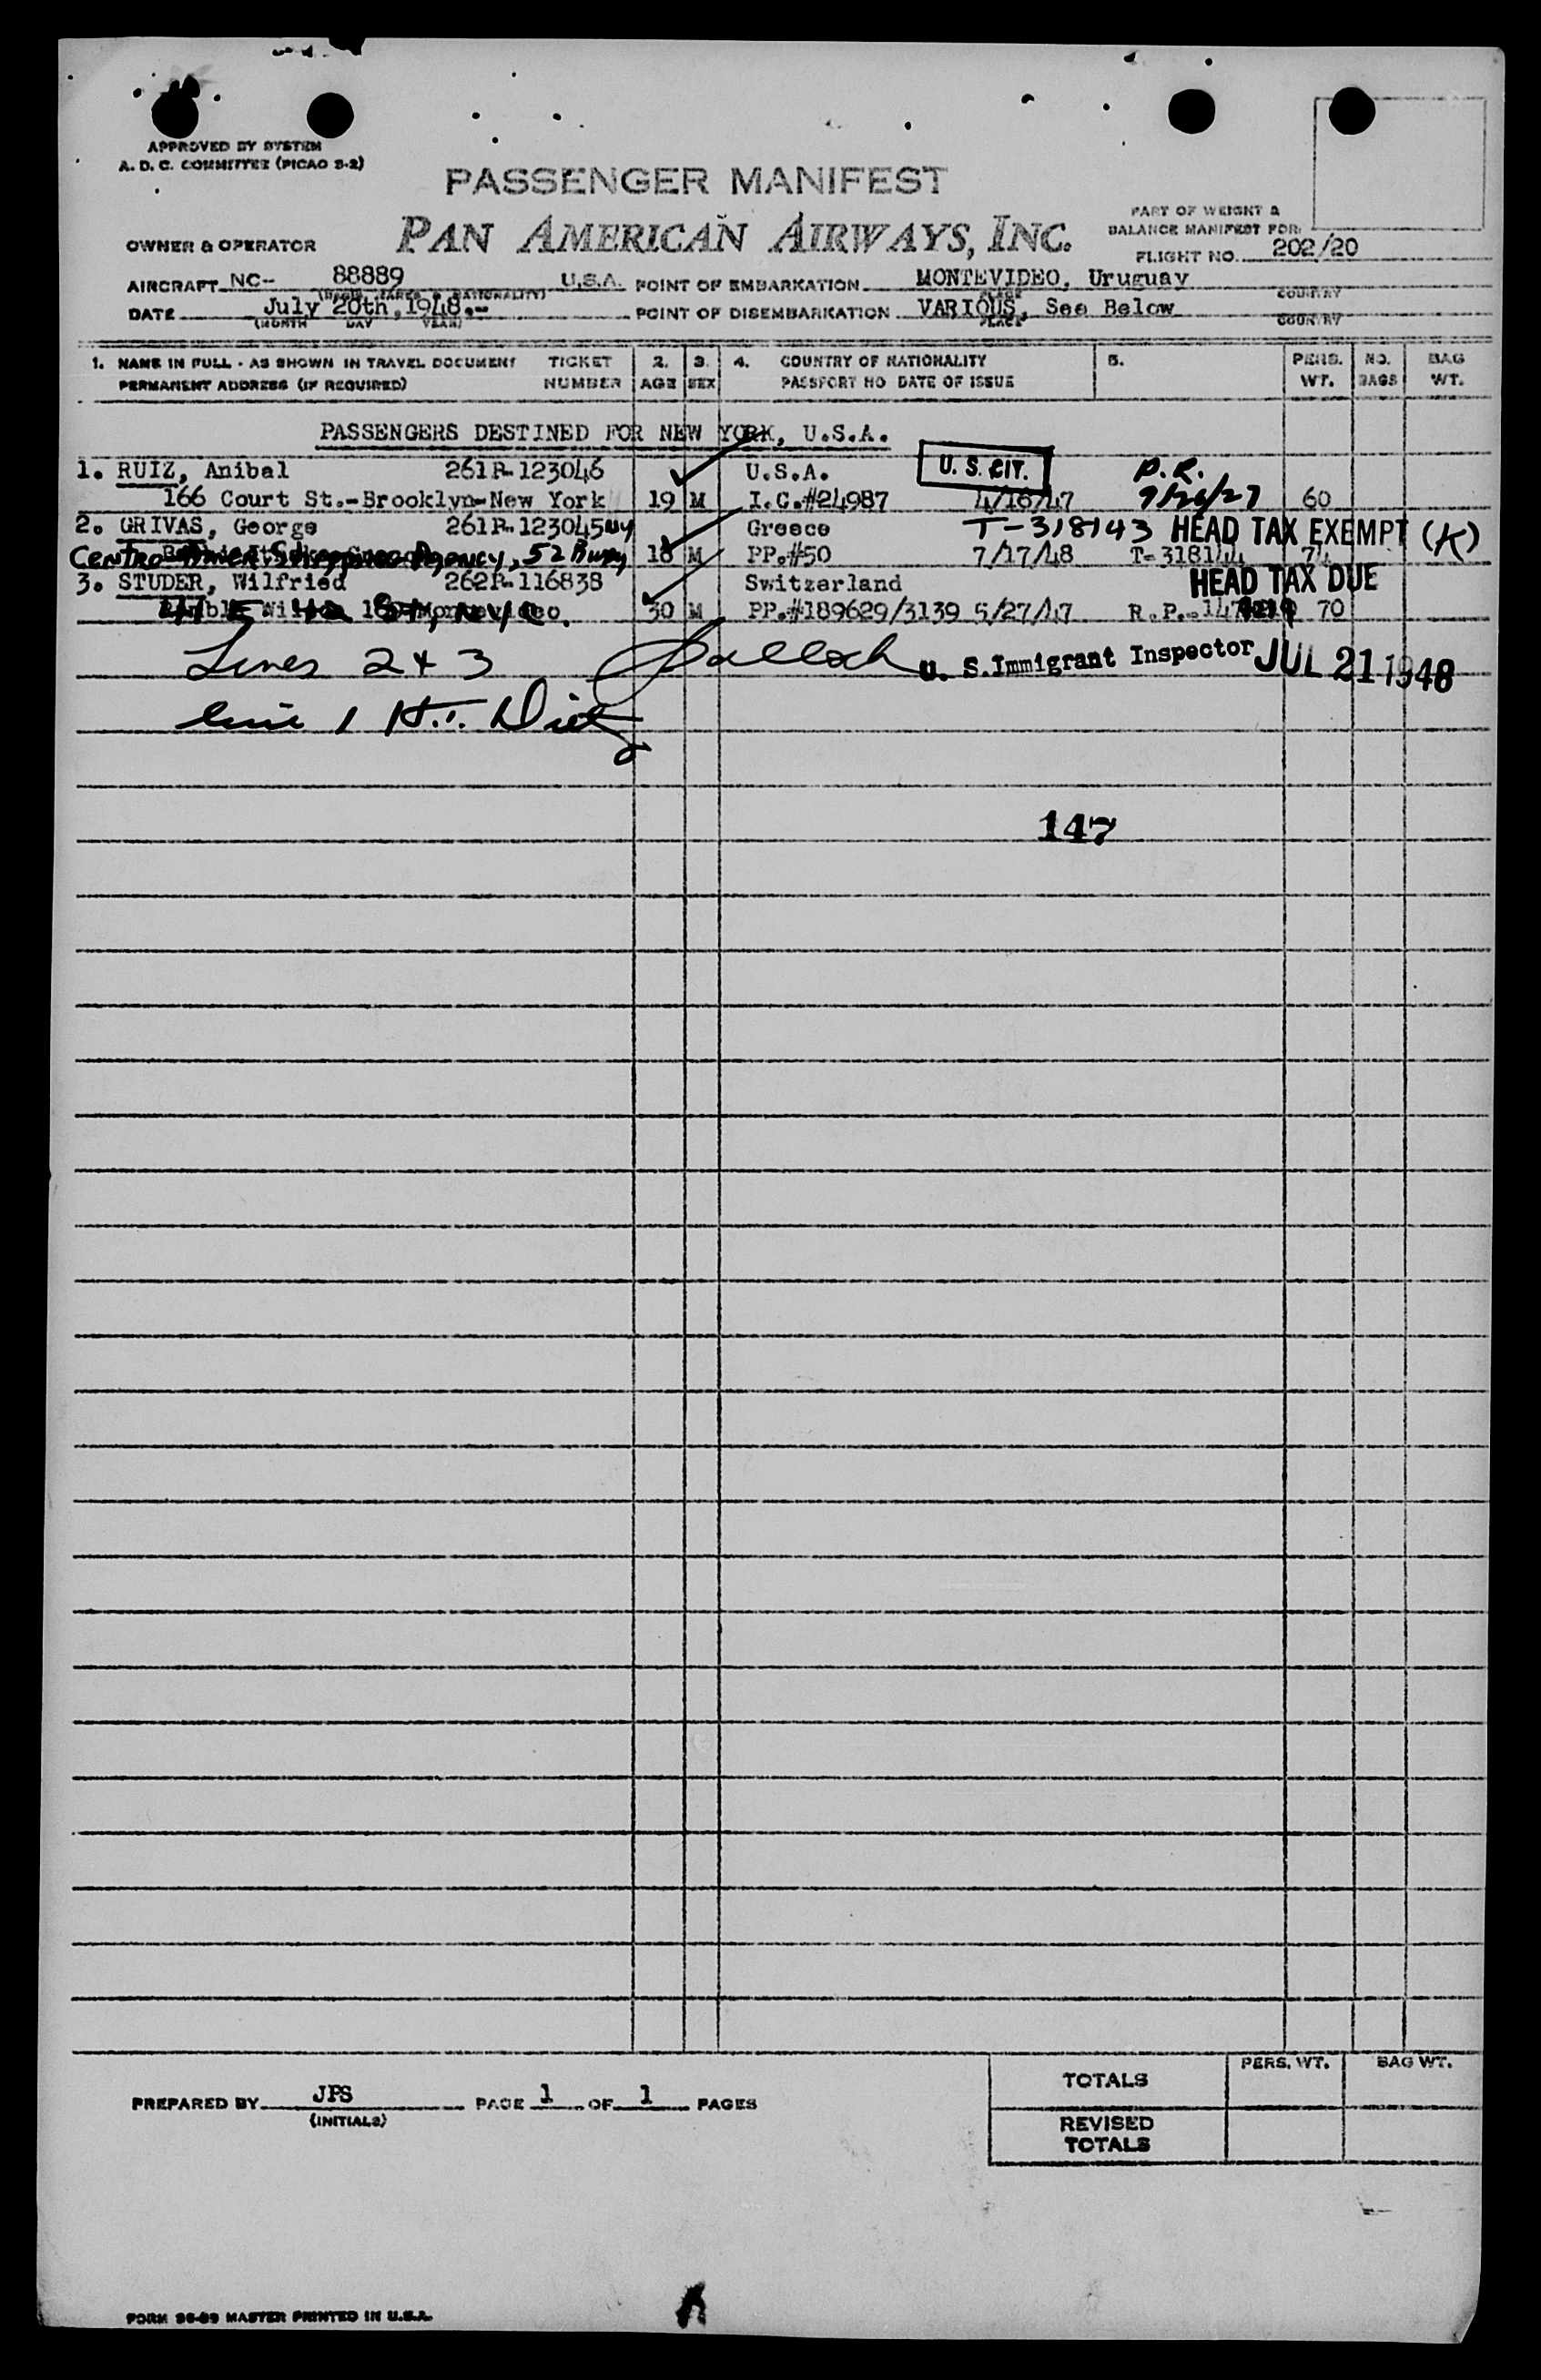 APPROVED BY SYSTEM
A. D. C. COMMITTEE (PICAO S-2)
PASSENGER MANIFEST
PAN AMERICAN AIRWAYS, INC.
PART OF WEIGHT &
BALANCE MANIFEST FOR:
OWNER & OPERATOR
FLIGHT NO. 202/20
AIRCRAFT NC- 88889 U.S.A. POINT OF EMBARKATION MONTEVIDEO, Uruguay
(REGIS. MARKS & NATIONALITY) PLACE COUNTRY
DATE July 20th, 1948.- POINT OF DISEMBARKATION VARIOUS, See Below
(MONTH DAY YEAR) PLACE COUNTRY
1. NAME IN FULL - AS SHOWN IN TRAVEL DOCUMENT TICKET 2. 3. 4. COUNTRY OF NATIONALITY 5. PERS. NO. BAG
PERMANENT ADDRESS (IF REQUIRED) NUMBER AGE SEX PASSPORT NO DATE OF ISSUE WT. BAGS WT.
PASSENGERS DESTINED FOR NEW YORK, U.S.A.
1. RUIZ, Anibal 261R-123046 U.S.A. U. S. CIT. P.R.
166 Court St.-Brooklyn-New York 19 M I.C.#24987 4/16/47 7/26/27 60
2. GRIVAS, George 261R-123045 Greece T-318143 HEAD TAX EXEMPT (K)
Agency, 52 18 M PP.#50 7/17/48 T-318144 74
3. STUDER, Wilfried 262R-116838 Switzerland HEAD TAX DUE
Montevideo. 30 M PP.#189629/3139 5/27/47 R.P.- 70
Lines 2 & 3 U. S. Immigrant Inspector JUL 21 1948
line 1 H.T. Dietz
147
TOTALS PERS. WT. BAG WT.
PREPARED BY JPS PAGE 1 OF 1 PAGES
(INITIALS)
REVISED
TOTALS
FORM 96-89 MASTER PRINTED IN U.S.A.